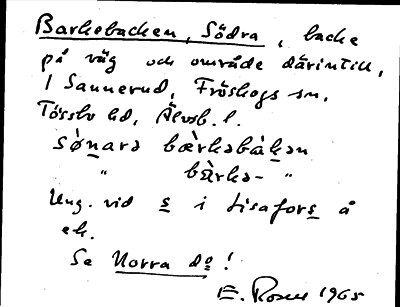 Barkebacken, Södra, backe
på väg och område därintill,
1 Sannerud, Fröskogs sn,
Tössbo hd, Älvsb. l.
sø̀narə bærkəbàkən
" bàrkə- "
Ung. vid s i Lisafors å
ek.
Se Norra do!
E. Rosell 1965